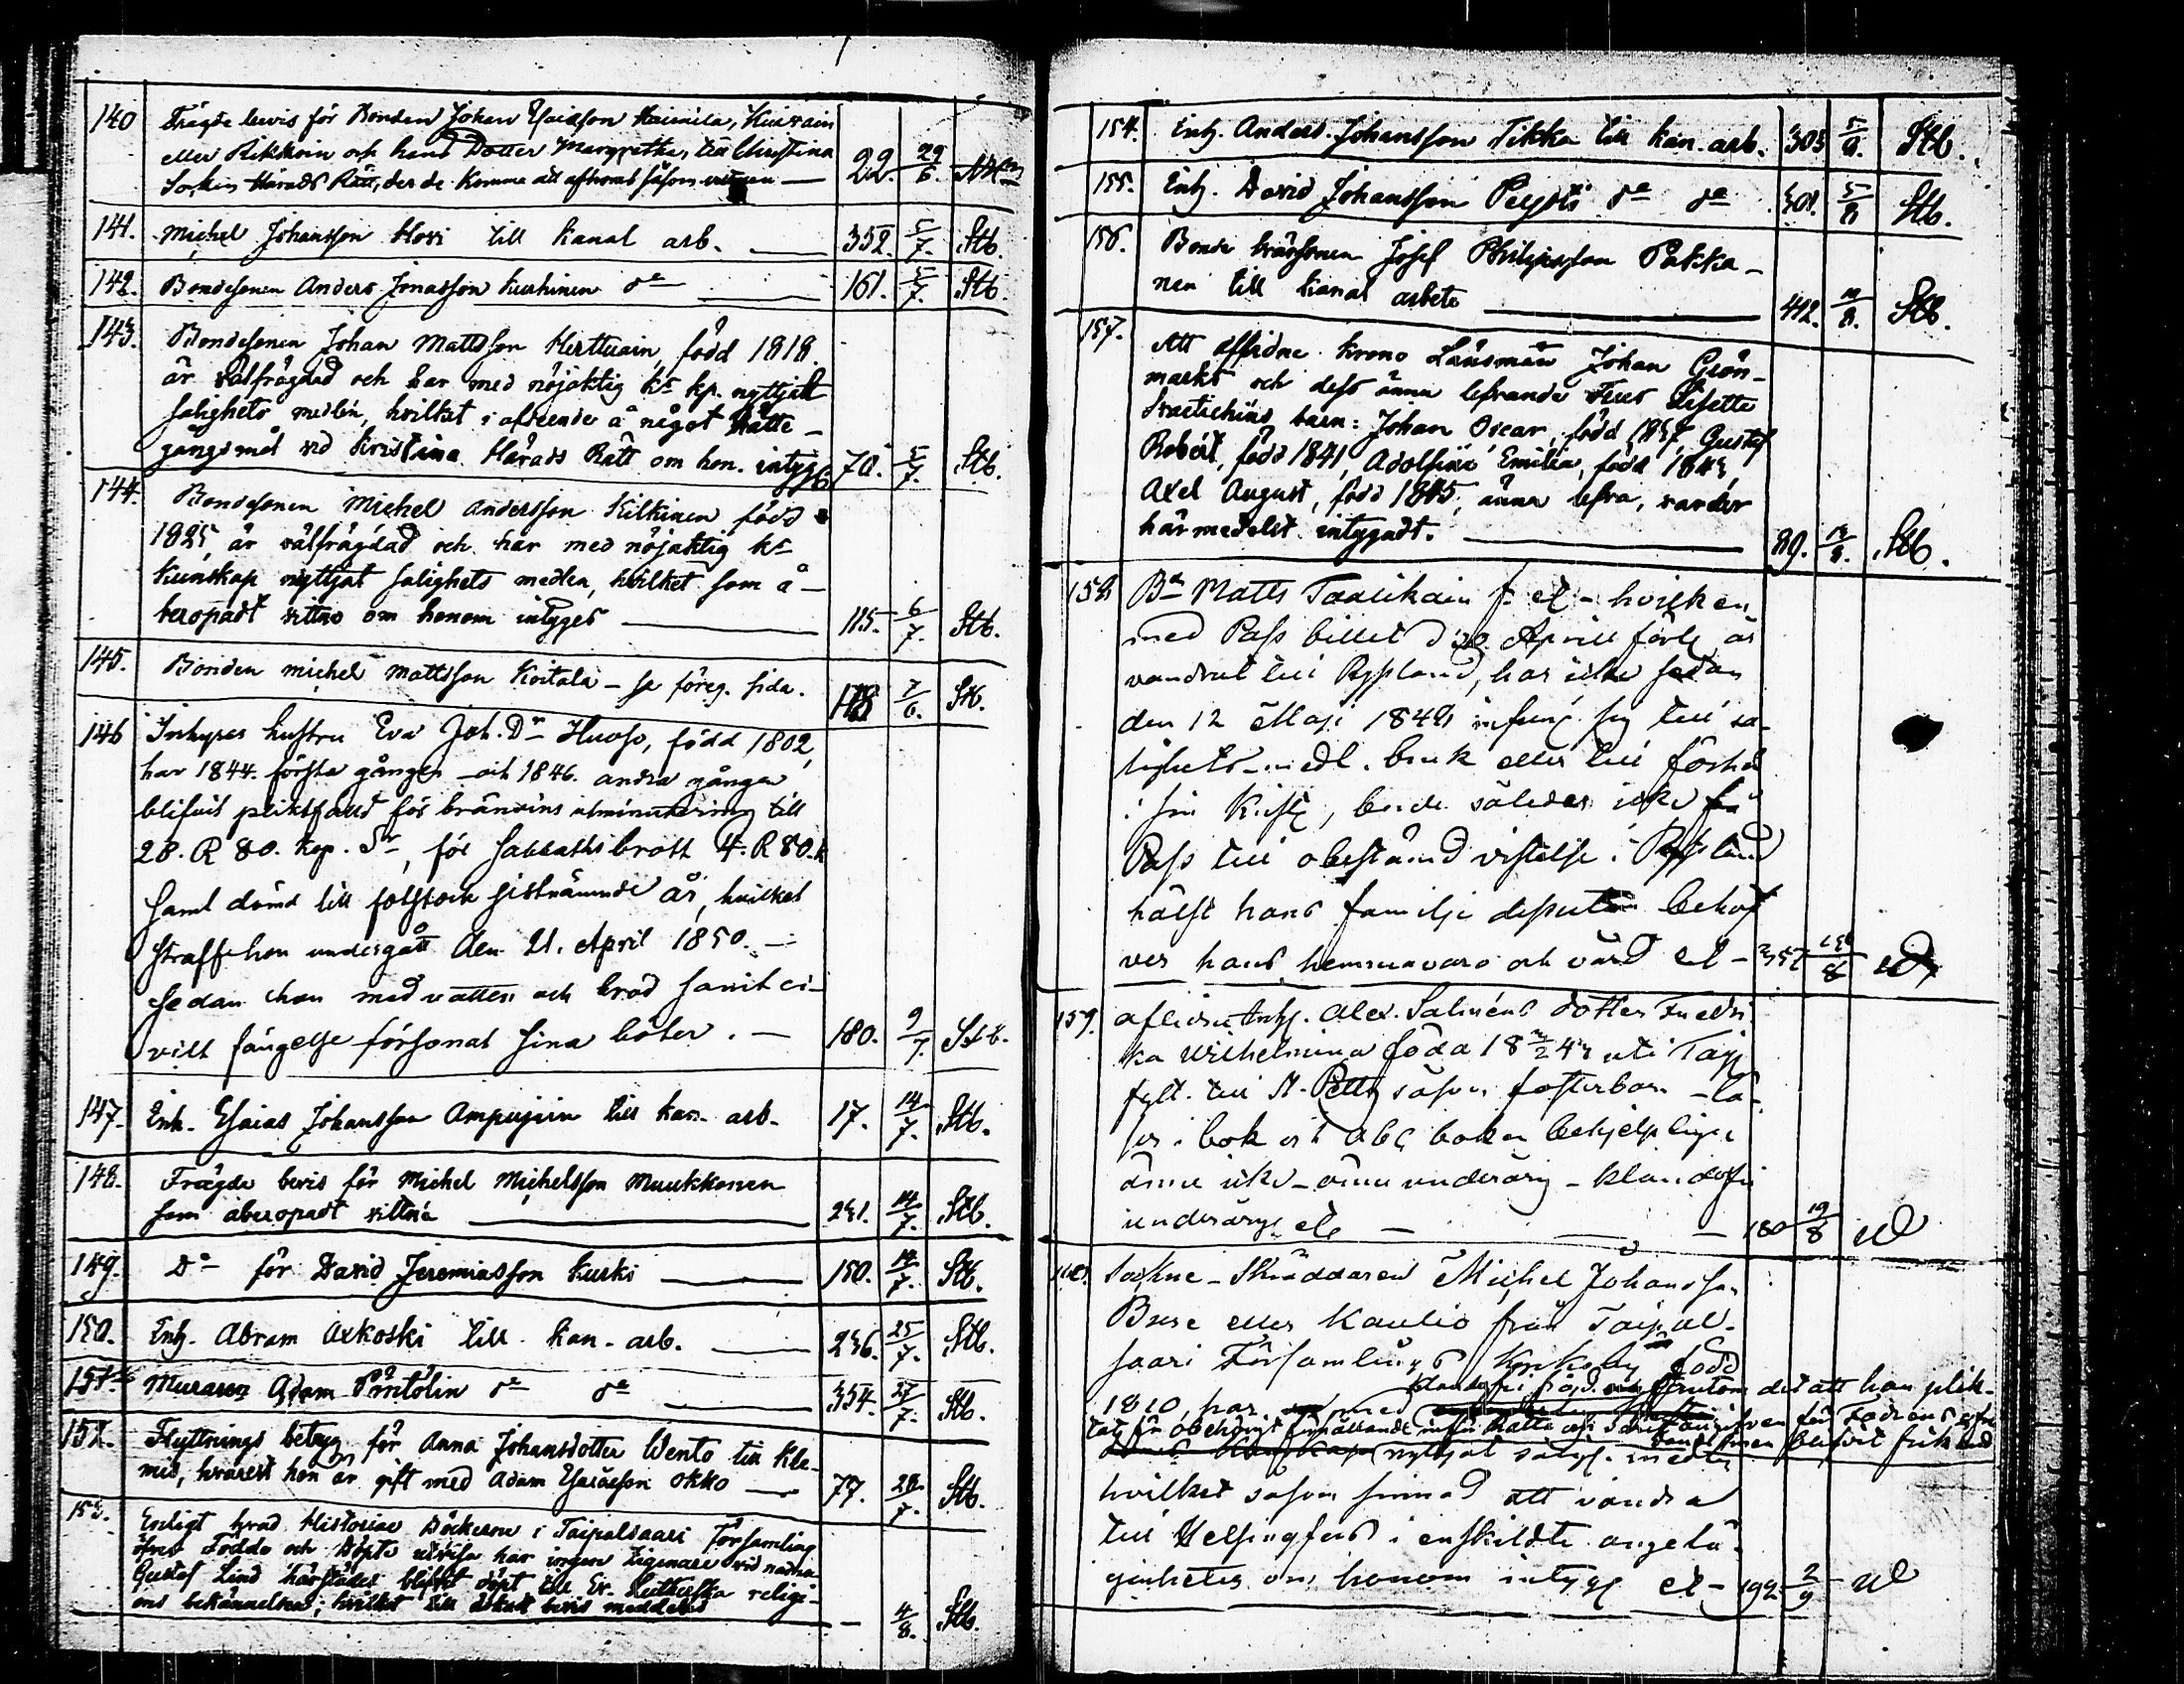 140 Frägde bevis för Bonden Johan Esaiasson Heimila, Huivain
eller Rikkoin och hans Dotter Margretha, till Christina
Sockens Härads Rätt, der de komma att afhöras såsom vittnen — 22. 29/6.
141. Michel Johansson Hovi till kanal arb. — 352. 5/7. Stb.
142. Bondesonen Anders Jonasson Kurhinen do — 161. 5/7. Stb.
143. Bondesonen Johan Mattsson Kerttuain, född 1818.
är välfrägdad och har med nöjaktig ks kp. nyttjat
salighets medlen, hvilket i afseende å något Rätte-
gångsmål vid Kristina Härads Rätt om hon. intyg 70. 5/7. Stb.
144. Bondesonen Michel Andersson Kilkinen född
1825, är välfrägdad och har med nöjaktig ks
kunskap nyttjat salighets medlen, hvilket som å-
beropadt vittne om honom intygas — 115. 6/7. Stb.
145. Bonden Michel Mattsson Koitala — se föreg. sida. 178 7/6. Stb.
146 Inhyses hustru Eva Joh. Dr Huoso, född 1802,
har 1844. första gången och 1846. andra gången
blifvit pliktfälld för bränvins utminutering till
28. R 80. kop. Sr, för sabbathsbrott 4. R 80. k
samt dömd till fotstock sistnämnde år, hvilket
straff hon undergått den 21. April 1850. —
Sedan hon med vatten och bröd samt ci-
vilt fängelse försonat sina böter. — 180. 9/7. Stb.
147. Enh. Esaias Johansson Ampujain till kan. arb. 17. 14/7. Stb.
148. Frägde bevis för Michel Michelsson Muukkonen
som åberopadt vittne — 231. 14/7. Stb.
149. Do för David Jeremiasson Kurki — 150. 14/7. Stb.
150. Enh. Abram Axkoski till kan. arb. — 236. 25/7. Stb.
151. Muraren Adam do do — 354. 27/7. Stb.
152. Flyttnings betyg för Anna Johansdotter Wento till Kle-
mis, hvarest hon är gift med Adam Esaiasson Okko — 77. 28/7. Stb.
153. Enligt hvad Historiae Böckerne i Taipalsaari Församling
öfver Födde och Döpte utvisa har ingen Zigenare vid namn
Gustaf Lind härstädes blifvit döpt till Ev. Lutherska religi-
ons bekännelsen; hvilket till äskadt bevis meddelas — 4/8. Stb.
154. Enh. Anders Johansson Tikka till kan. arb. 303 5/8. Stb.
155. Enh. David Johansson do do 301. 5/8 Stb.
156. Bonde brorsonen Josef Philipsson Pakka-
nen till kanal arbete — 412. 8. Stb.
157. Att aflidne Krono Länsman Johan Grön-
marks och dess ännu lefvande Frus Lisette
barn: Johan Oscar, född 1837, Gustaf
Robert, född 1841, Adolfina Emilia, född 1843
Axel August, född 1845, ännu lefva, varder
härmedelst intygadt. — 89. 8. Stb.
158 Bn Matts Taalikain f. et – hvilken
med Pass billet d 30 Aprill förl. år
vandrat till Ryssland, har icke sedan
den 12 Maji 1848 infunn. sig till sa-
lighets medl. bruk eller till förhör
i sin Krist, borde således icke få
Pass till obestämd vistelse i Ryssland
hälst hans familje behöf
ver hans hemmavaro och vård et — 357 8
159. aflidne Enh. Alex. Saliméns dotter Fredri-
ka Wilhelmina föda 18 43 uti Taip
fylt. till St. Petb såsom fosterbarn – lä-
ser i bok och abc boken behjelpligen
ännu icke – ännu underårig –
underårig etc — 180 19/8
160. Sockne-Skräddaren Michel Johansson
Buse eller Kaulio från Taipal-
saari Församlings by född
1810, har med frutom det att han plik-
tat för obehörigt förhållande inför Rätta och
nyttjat salig. medlen blifvit
hvilket såsom sinnad att vandra
till Helsingfors i enskildte angelä-
genheter om honom intyg. et – 192 2/9